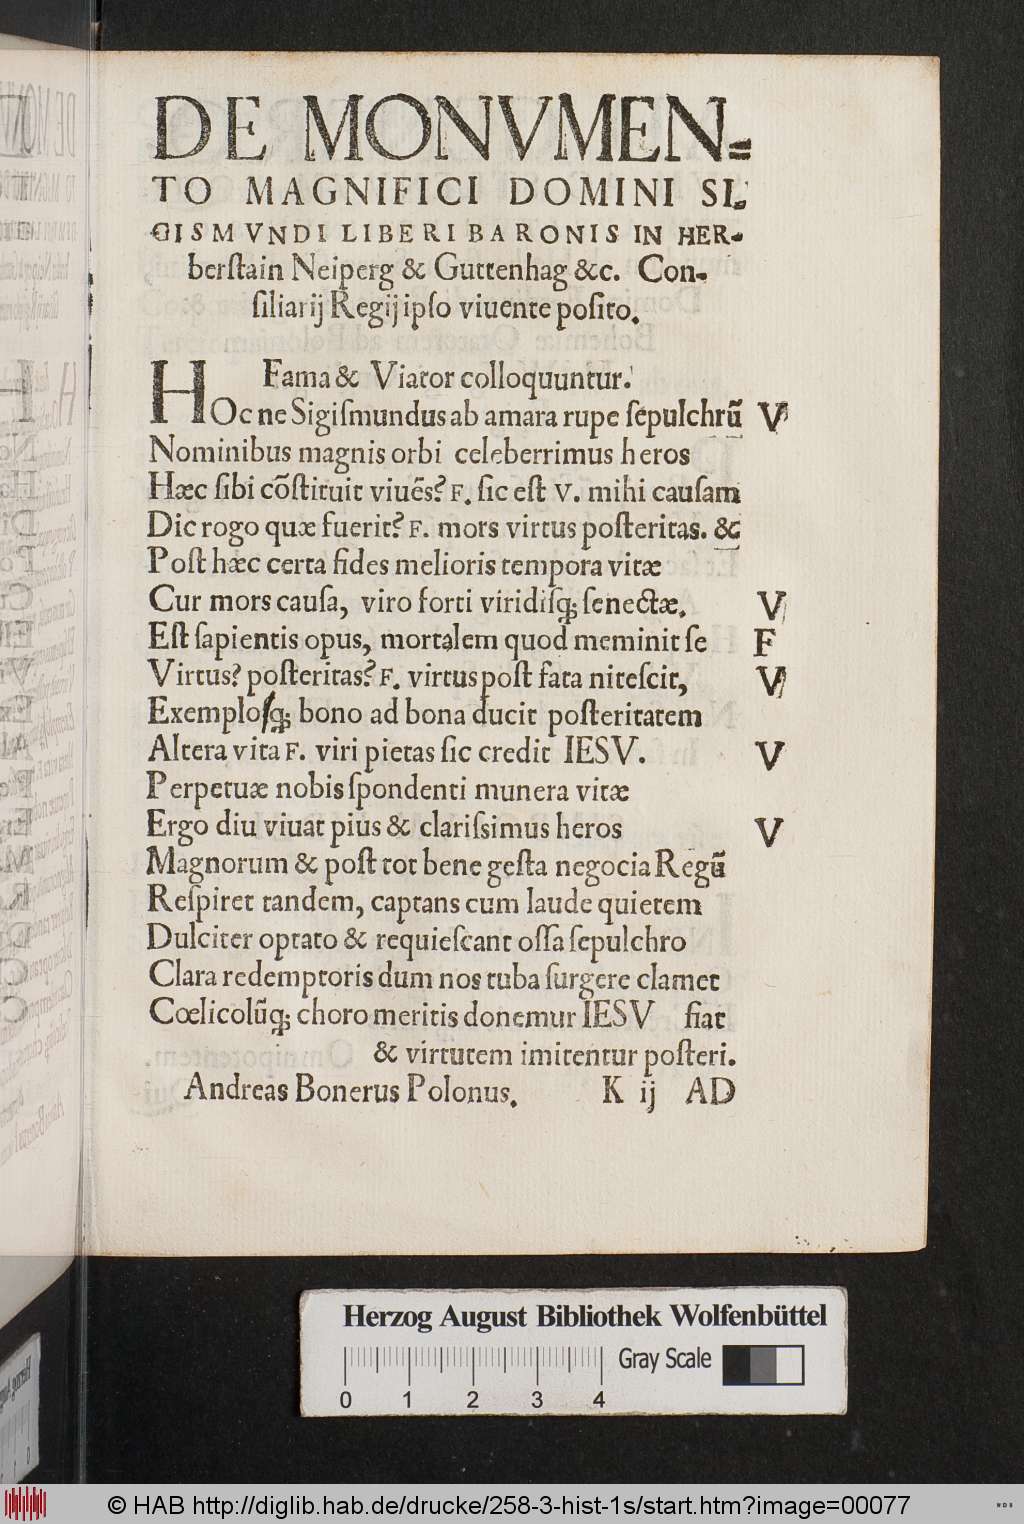 DE MONVMEN⸗
TO MAGNIFICI DOMINI SI⸗
GISMVNDI LIBERI BARONIS IN HER-
berſtain Neiperg & Guttenhag &c. Con-
ſiliarij Regij ipſo viuente poſito.
Fama & Viator colloquuntur.
HOc ne Sigiſmundus ab amara rupe ſepulchrũ V
Nominibus magnis orbi celeberrimus heros
Hæc ſibi cõſtituit viuẽs? F. ſic eſt V. mihi cauſam
Dic rogo quæ fuerit? F. mors virtus poſteritas. &
Poſt hæc certa fides melioris tempora vitæ
Cur mors cauſa, viro forti viridiſq; ſenectæ. V
Eſt ſapientis opus, mortalem quod meminit ſe F
Virtus? poſteritas? F. virtus poſt fata niteſcit, V
Exemploſq; bono ad bona ducit poſteritatem
Altera vita F. viri pietas ſic credit IESV. V
Perpetuæ nobis ſpondenti munera vitæ
Ergo diu viuat pius & clariſsimus heros V
Magnorum & poſt tot bene geſta negocia Regũ
Reſpiret tandem, captans cum laude quietem
Dulciter optato & requieſcant oſſa ſepulchro
Clara redemptoris dum nos tuba ſurgere clamet
Cœlicolũq; choro meritis donemur IESV fiat
& virtutem imitentur poſteri.
Andreas Bonerus Polonus. K ij AD
Herzog August Bibliothek Wolfenbüttel
Gray Scale
0 1 2 3 4
© HAB http://diglib.hab.de/drucke/258-3-hist-1s/start.htm?image=00077